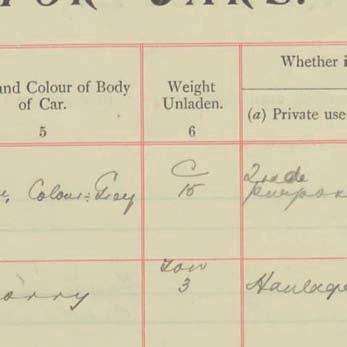 FOR CARS.
and Colour of Body
of Car.
Weight
Unladen.
Whether i
(a) Private use
5
6
Colour: Grey
C
15
Trade
purpos
Lorry
Ton
3
Haulage